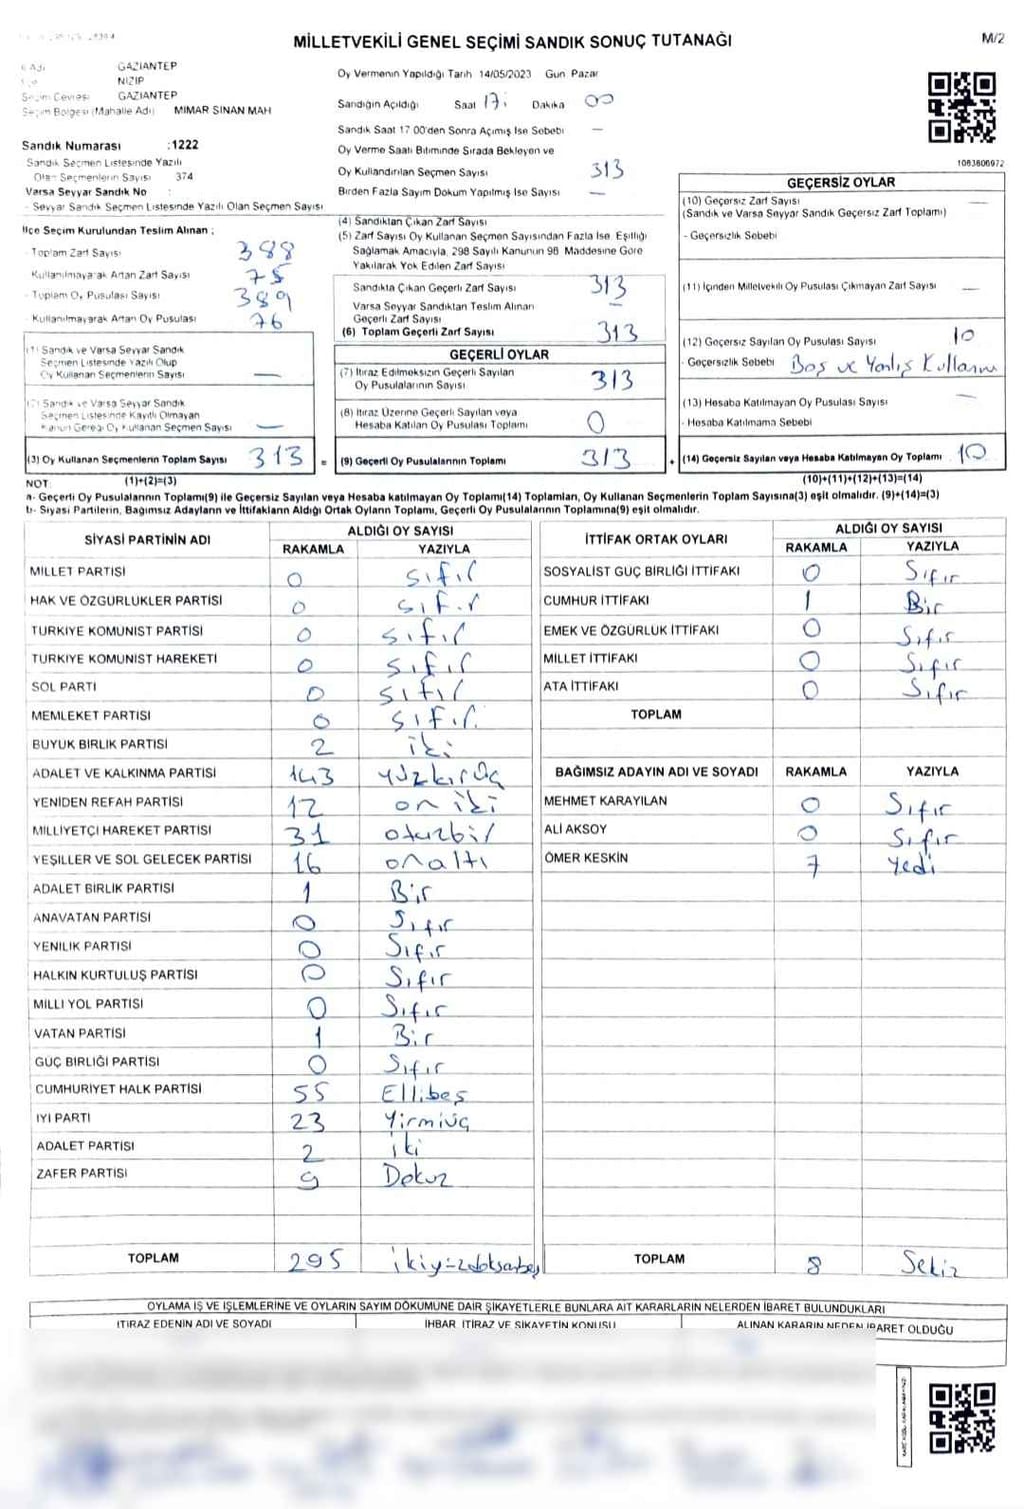 MİLLETVEKİLİ GENEL SEÇİMİ SANDIK SONUÇ TUTANAĞI
M/2
GAZİANTEP
NİZİP
Seçim Çevresi GAZİANTEP
Seçim Bölgesi (Mahalle Adı) MİMAR SİNAN MAH
Sandık Numarası :1222
Sandık Seçmen Listesinde Yazılı
Olan Seçmenlerin Sayısı 374
Varsa Seyyar Sandık No :
- Seyyar Sandık Seçmen Listesinde Yazılı Olan Seçmen Sayısı
Oy Vermenin Yapıldığı Tarih 14/05/2023 Gün Pazar
Sandığın Açıldığı Saat 17: Dakika 00
Sandık Saat 17 00'den Sonra Açımış İse Sebebi —
Oy Verme Saati Bitiminde Sırada Bekleyen ve
Oy Kullandırılan Seçmen Sayısı 313
Birden Fazla Sayım Döküm Yapılmış İse Sayısı —
1083606972
İlçe Seçim Kurulundan Teslim Alınan ;
- Toplam Zarf Sayısı 388
Kullanılmayarak Artan Zarf Sayısı 75
- Toplam Oy Pusulası Sayısı 389
- Kullanılmayarak Artan Oy Pusulası 76
(1) Sandık ve Varsa Seyyar Sandık
Seçmen Listesinde Yazılı Olup
Oy Kullanan Seçmenlerin Sayısı —
(2) Sandık ve Varsa Seyyar Sandık
Seçmen Listesinde Kayıtlı Olmayan
Kanun Gereği Oy Kullanan Seçmen Sayısı —
(3) Oy Kullanan Seçmenlerin Toplam Sayısı 313 =
(4) Sandıktan Çıkan Zarf Sayısı
(5) Zarf Sayısı Oy Kullanan Seçmen Sayısından Fazla İse, Eşitliği
Sağlamak Amacıyla, 298 Sayılı Kanunun 98 Maddesine Göre
Yakılarak Yok Edilen Zarf Sayısı
Sandıkta Çıkan Geçerli Zarf Sayısı 313
Varsa Seyyar Sandıktan Teslim Alınan
Geçerli Zarf Sayısı —
(6) Toplam Geçerli Zarf Sayısı 313
GEÇERLİ OYLAR
(7) İtiraz Edilmeksizin Geçerli Sayılan
Oy Pusulalarının Sayısı 313
(8) İtiraz Üzerine Geçerli Sayılan veya
Hesaba Katılan Oy Pusulası Toplamı 0
(9) Geçerli Oy Pusulalarının Toplamı 313 +
GEÇERSİZ OYLAR
(10) Geçersiz Zarf Sayısı —
(Sandık ve Varsa Seyyar Sandık Geçersiz Zarf Toplamı)
- Geçersizlik Sebebi
(11) İçinden Milletvekili Oy Pusulası Çıkmayan Zarf Sayısı —
(12) Geçersiz Sayılan Oy Pusulası Sayısı 10
- Geçersizlik Sebebi Boş ve Yanlış Kullanım
(13) Hesaba Katılmayan Oy Pusulası Sayısı —
- Hesaba Katılmama Sebebi
(14) Geçersiz Sayılan veya Hesaba Katılmayan Oy Toplamı 10
NOT: (1)+(2)=(3) (10)+(11)+(12)+(13)=(14)
a- Geçerli Oy Pusulalarının Toplamı(9) ile Geçersiz Sayılan veya Hesaba katılmayan Oy Toplamı(14) Toplamları, Oy Kullanan Seçmenlerin Toplam Sayısına(3) eşit olmalıdır. (9)+(14)=(3)
b- Siyasi Partilerin, Bağımsız Adayların ve İttifakların Aldığı Ortak Oyların Toplamı, Geçerli Oy Pusulalarının Toplamına(9) eşit olmalıdır.
SİYASİ PARTİNİN ADI ALDIĞI OY SAYISI
RAKAMLA YAZIYLA
MİLLET PARTİSİ 0 sıfır
HAK VE ÖZGÜRLÜKLER PARTİSİ 0 sıfır
TÜRKİYE KOMÜNİST PARTİSİ 0 sıfır
TÜRKİYE KOMÜNİST HAREKETİ 0 sıfır
SOL PARTİ 0 sıfır
MEMLEKET PARTİSİ 0 sıfır
BÜYÜK BİRLİK PARTİSİ 2 iki
ADALET VE KALKINMA PARTİSİ 143 yüzkırküç
YENİDEN REFAH PARTİSİ 12 on iki
MİLLİYETÇİ HAREKET PARTİSİ 31 otuzbir
YEŞİLLER VE SOL GELECEK PARTİSİ 16 onaltı
ADALET BİRLİK PARTİSİ 1 Bir
ANAVATAN PARTİSİ 0 Sıfır
YENİLİK PARTİSİ 0 Sıfır
HALKIN KURTULUŞ PARTİSİ 0 Sıfır
MİLLİ YOL PARTİSİ 0 Sıfır
VATAN PARTİSİ 1 Bir
GÜÇ BİRLİĞİ PARTİSİ 0 Sıfır
CUMHURİYET HALK PARTİSİ 55 Ellibeş
İYİ PARTİ 23 Yirmiüç
ADALET PARTİSİ 2 iki
ZAFER PARTİSİ 9 Dokuz
TOPLAM 295 ikiyüzdoksanbeş
İTTİFAK ORTAK OYLARI ALDIĞI OY SAYISI
RAKAMLA YAZIYLA
SOSYALİST GÜÇ BİRLİĞİ İTTİFAKI 0 Sıfır
CUMHUR İTTİFAKI 1 Bir
EMEK VE ÖZGÜRLÜK İTTİFAKI 0 Sıfır
MİLLET İTTİFAKI 0 Sıfır
ATA İTTİFAKI 0 Sıfır
TOPLAM
BAĞIMSIZ ADAYIN ADI VE SOYADI RAKAMLA YAZIYLA
MEHMET KARAYILAN 0 Sıfır
ALİ AKSOY 0 Sıfır
ÖMER KESKİN 7 Yedi
TOPLAM 8 Sekiz
OYLAMA İŞ VE İŞLEMLERİNE VE OYLARIN SAYIM DÖKÜMÜNE DAİR ŞİKAYETLERLE BUNLARA AİT KARARLARIN NELERDEN İBARET BULUNDUKLARI
İTİRAZ EDENİN ADI VE SOYADI İHBAR, İTİRAZ VE ŞİKAYETİN KONUSU ALINAN KARARIN NEDEN İBARET OLDUĞU